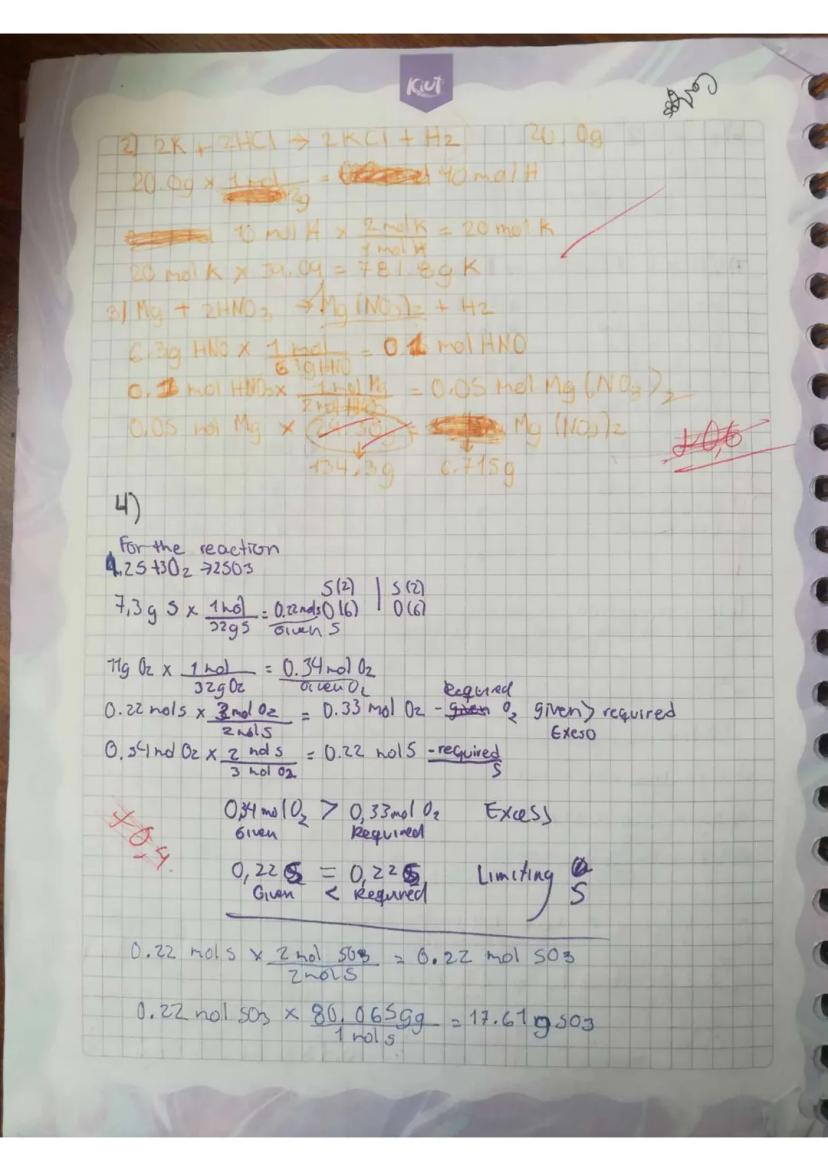 Kiut
2) 2K + 2HCl → 2KCl + H2 20.0g
20.0g × 1 mol / 2g = 10 mol H
10 mol H × 2 mol K / 1 mol H = 20 mol K
20 mol K × 39.09 = 781.8g K
3) Mg + 2HNO3 → Mg(NO3)2 + H2
6.3g HNO × 1 mol / 63g HNO = 0.1 mol HNO
0.1 mol HNO3 × 1 mol Mg / 2 mol HNO3 = 0.05 mol Mg(NO3)2
0.05 mol Mg × Mg(NO3)2
134.3g 6.715g
+0,6
4)
For the reaction
2S+3O2→2SO3
S(2) | S(2)
7,3g S × 1 mol / 32g S = 0.22 mols O(6) | O(6)
Given S
11g O2 × 1 mol / 32g O2 = 0.34 mol O2
Given O2
Required
0.22 mol S × 3 mol O2 / 2 mol S = 0.33 mol O2 - given O2 given > required
Exeso
0.34 mol O2 × 2 mol S / 3 mol O2 = 0.22 mol S - required
S
0,34 mol O2 > 0,33 mol O2 Excess
Given Required
+0,4
0,22 S = 0,22 S Limiting
Given < Required S
0.22 mol S × 2 mol SO3 / 2 mol S = 0.22 mol SO3
0.22 mol SO3 × 80.0659g / 1 mol s = 17.61g SO3